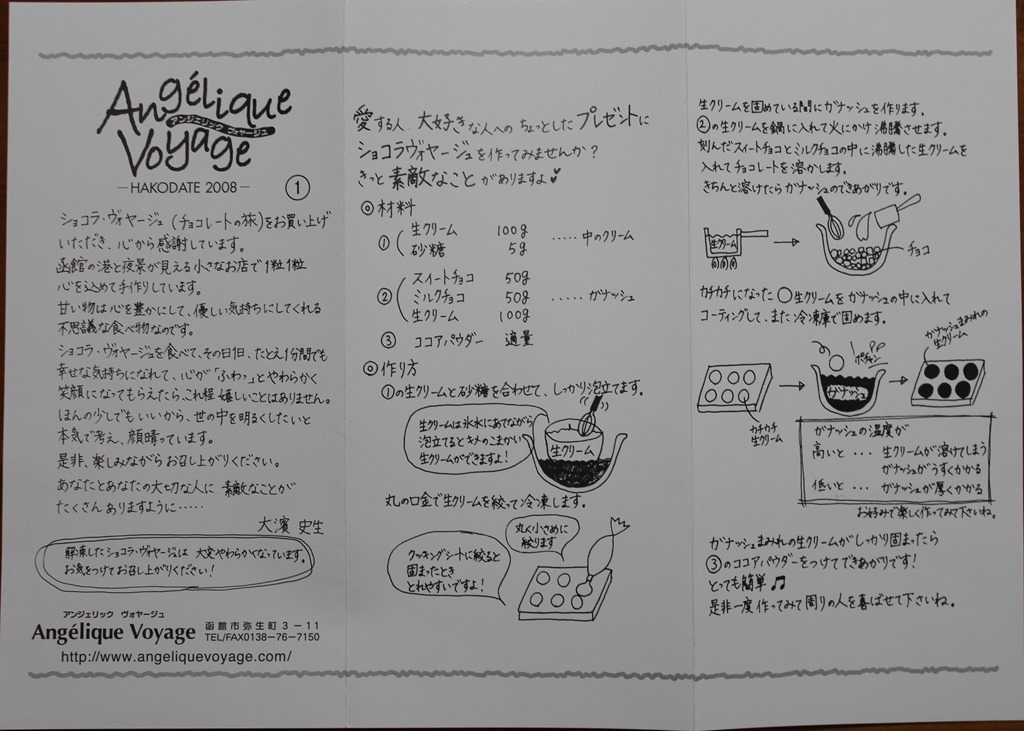 Angélique
アンジェリック ヴォヤージュ
Voyage
—HAKODATE 2008—
①
ショコラ・ヴォヤージュ(チョコレートの旅)をお買い上げ
いただき、心から感謝しています。
函館の港と夜景が見える小さなお店で1粒1粒
心を込めて手作りしています。
甘い物は心を豊かにして、優しい気持ちにしてくれる
不思議な食べ物なのです。
ショコラ・ヴォヤージュを食べて、その日1日、たとえ1分間でも
幸せな気持ちになれて、心が「ふわっ」とやわらかく
笑顔になってもらえたら、これ程嬉しいことはありません。
ほんの少しでもいいから、世の中を明るくしたいと
本気で考え、顔晴っています。
是非、楽しみながらお召し上がりください。
あなたとあなたの大切な人に素敵なことが
たくさんありますように……
大濱 史生
解凍したショコラ・ヴォヤージュは大変やわらかくなっています。
お気をつけてお召し上がりください!
アンジェリック ヴォヤージュ
Angélique Voyage
函館市弥生町3-11
TEL/FAX0138-76-7150
http://www.angeliquevoyage.com/
愛する人、大好きな人へのちょっとしたプレゼントに
ショコラヴォヤージュを作ってみませんか?
きっと素敵なことがありますよ♥
◎材料
① 生クリーム 100g
砂糖 5g ……中のクリーム
② スイートチョコ 50g
ミルクチョコ 50g ……ガナッシュ
生クリーム 100g
③ ココアパウダー 適量
◎作り方
①の生クリームと砂糖を合わせて、しっかり泡立てます。
生クリームは氷水にあてながら
泡立てるとキメのこまかい
生クリームができますよ!
生クリーム
丸の口金で生クリームを絞って冷凍します。
丸く小さめに
絞ります
クッキングシートに絞ると
固まったとき
とれやすいですよ!
生クリームを固めている間にガナッシュを作ります。
②の生クリームを鍋に入れて火にかけ沸騰させます。
刻んだスイートチョコとミルクチョコの中に沸騰した生クリームを
入れてチョコレートを溶かします。
きちんと溶けたらガナッシュのできあがりです。
生クリーム
チョコ
カチカチになった○生クリームをガナッシュの中に入れて
コーティングして、また冷凍庫で固めます。
ガナッシュまみれの
生クリーム
ポチャン
ガナッシュ
カチカチ
生クリーム
ガナッシュの温度が
高いと…生クリームが溶けてしまう
ガナッシュがうすくかかる
低いと…ガナッシュが厚くかかる
お好みで楽しく作ってみて下さいね。
ガナッシュまみれの生クリームがしっかり固まったら
③のココアパウダーをつけてできあがりです!
とっても簡単♫
是非一度作ってみて周りの人を喜ばせて下さいね。